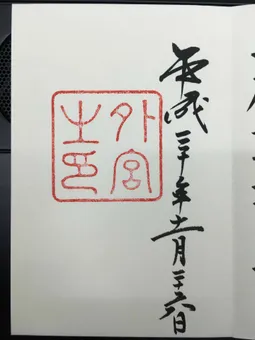 平成三十年十一月二十六日
外宮
之印